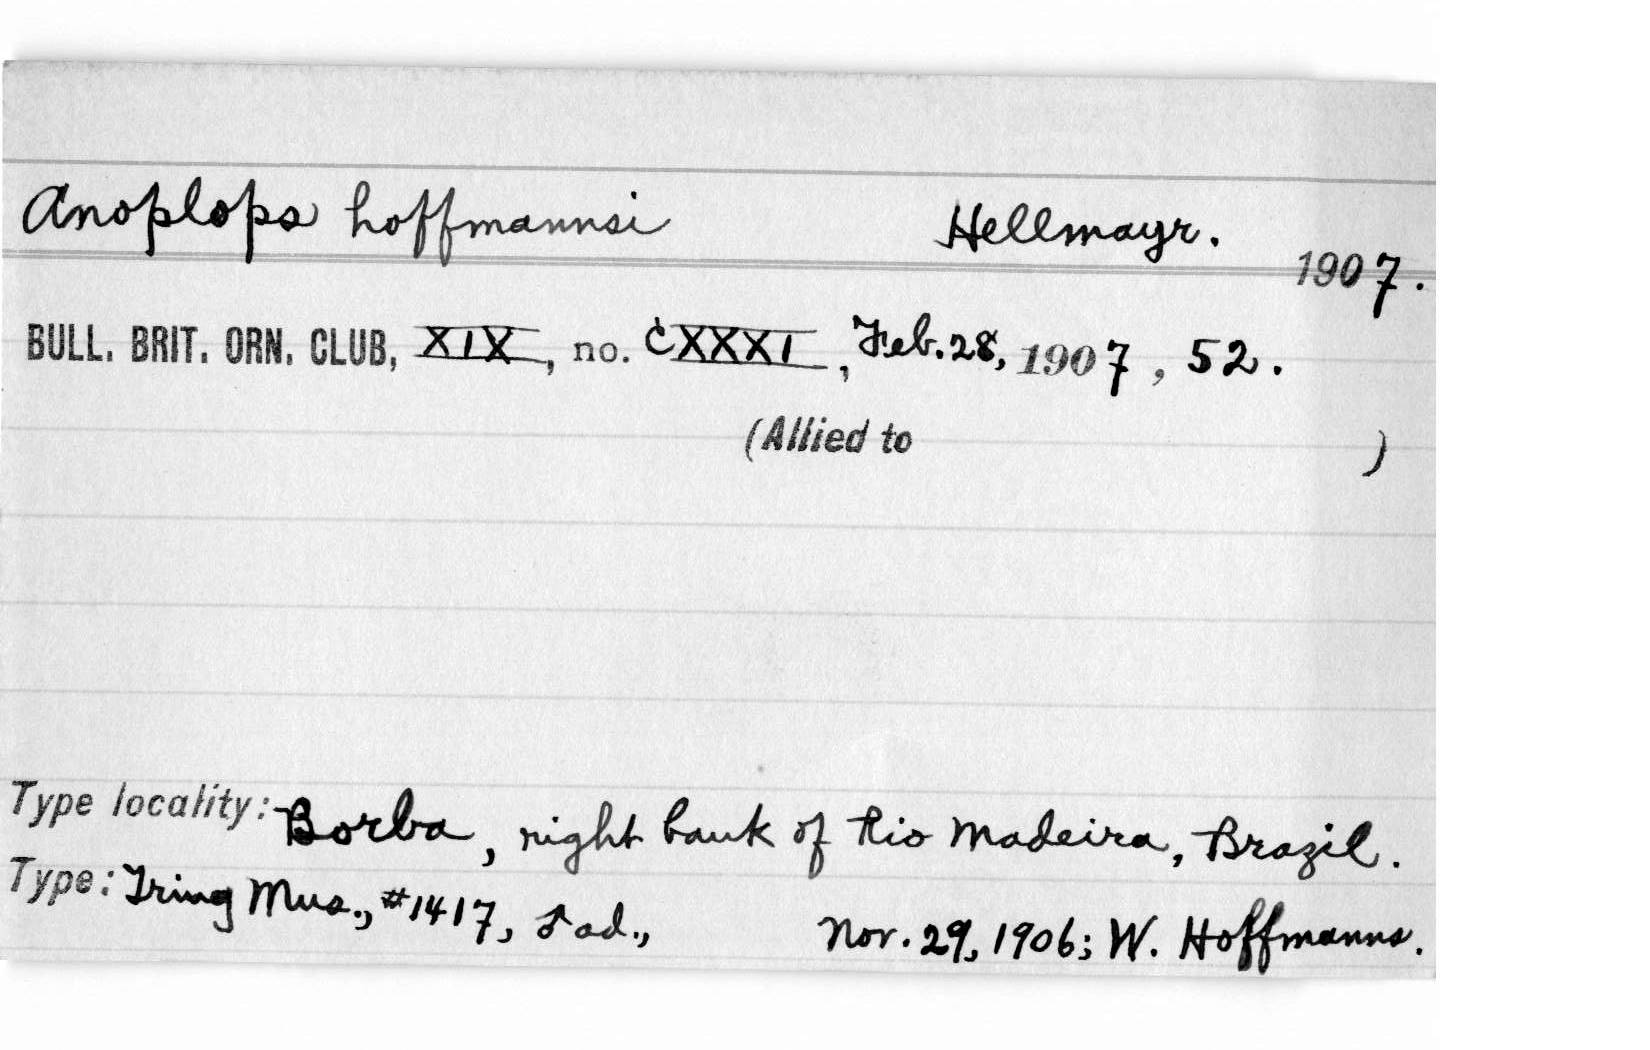 Anoplops hoffmannsi Hellmayr. 1907.
BULL. BRIT. ORN. CLUB, XIX, no. CXXXI, Feb. 28, 1907, 52.
(Allied to )
Type locality: Borba, right bank of Rio Madeira, Brazil.
Type: Tring Mus., #1417, ♂ ad., Nov. 29, 1906; W. Hoffmanns.